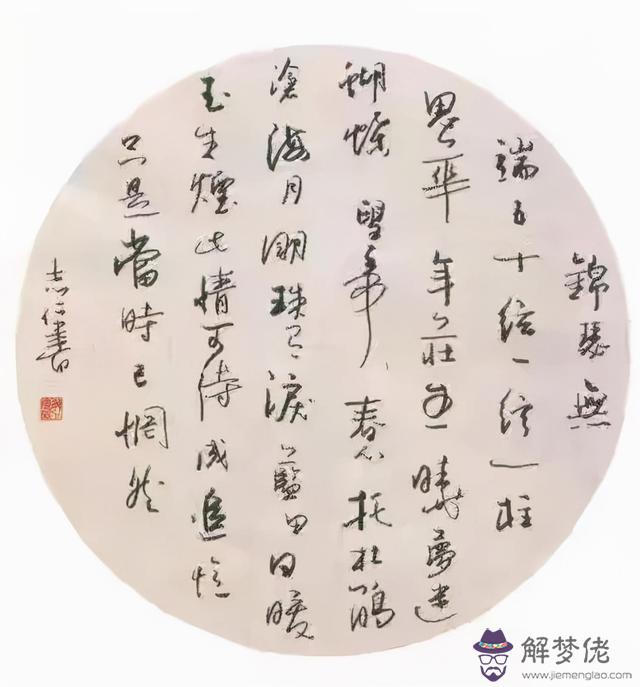 錦瑟無
端五十絃一絃一柱
思華年莊生曉夢迷
蝴蝶望帝春心托杜鵑
滄海月明珠有淚藍田日暖
玉生煙此情可待成追憶
只是當時已惘然
志書
解梦佬
www.jiemenglao.com